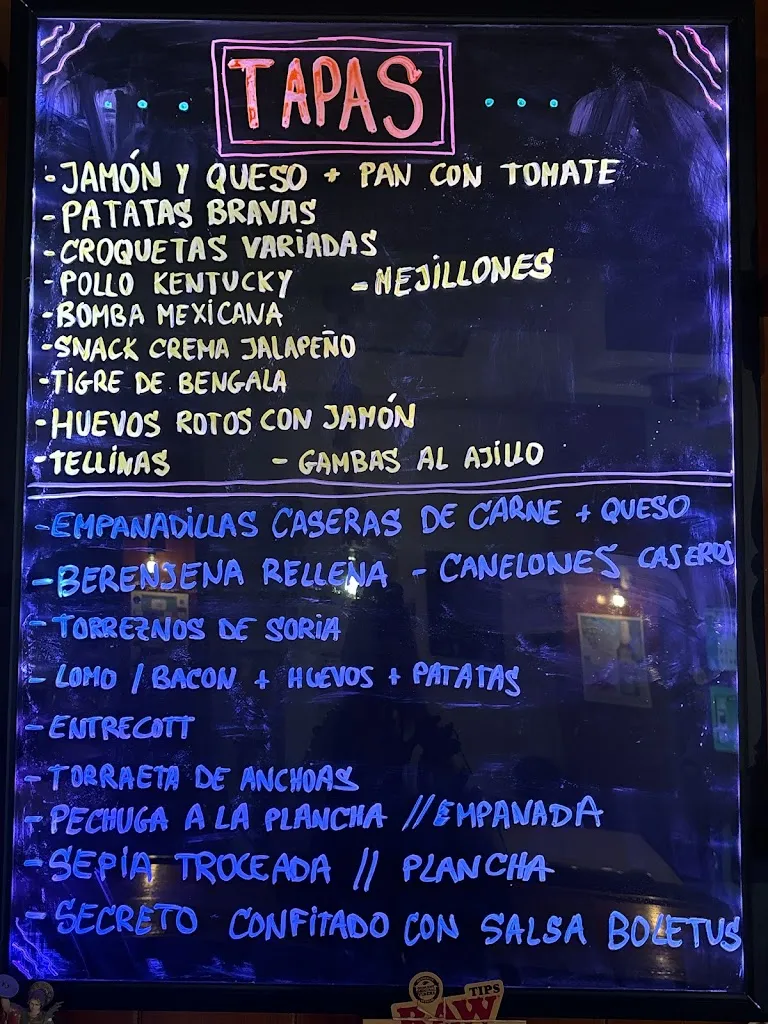 TAPAS
-JAMÓN Y QUESO + PAN CON TOMATE
-PATATAS BRAVAS
-CROQUETAS VARIADAS
-POLLO KENTUCKY -MEJILLONES
-BOMBA MEXICANA
-SNACK CREMA JALAPEÑO
-TIGRE DE BENGALA
-HUEVOS ROTOS CON JAMÓN
-TELLINAS - GAMBAS AL AJILLO
-EMPANADILLAS CASERAS DE CARNE + QUESO
-BERENJENA RELLENA - CANELONES CASEROS
-TORREZNOS DE SORIA
- LOMO / BACON + HUEVOS + PATATAS
-ENTRECOTT
-TORRAETA DE ANCHOAS
-PECHUGA A LA PLANCHA //EMPANADA
-SEPIA TROCEADA // PLANCHA
-SECRETO CONFITADO CON SALSA BOLETUS
TIPS
RAW